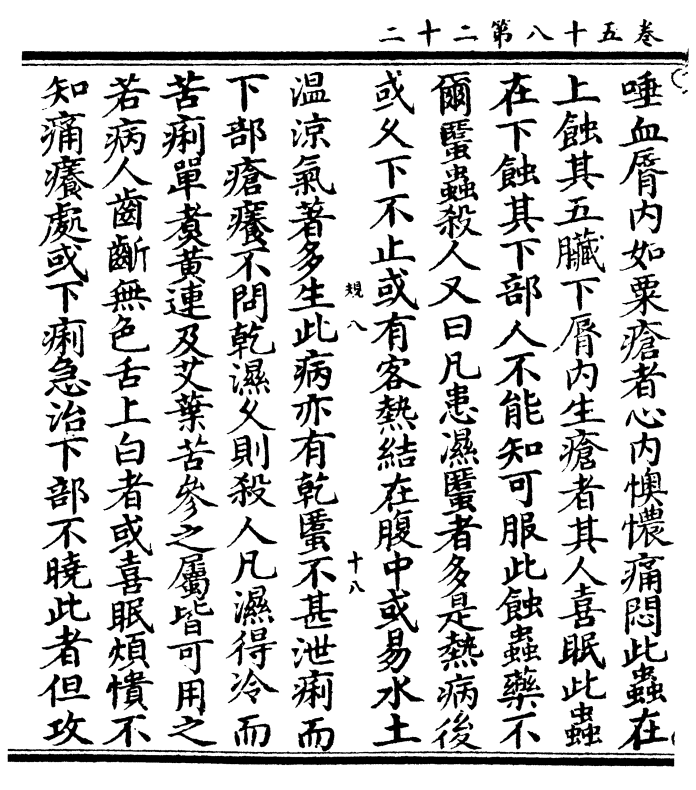 卷五十八第二十二
唾血脣内如粟瘡者心内懊憹痛悶此蟲在
上蝕其五臟下脣内生瘡者其人喜眠此蟲
在下蝕其下部人不能知可服此蝕蟲藥不
爾䘌蟲殺人又曰凡患濕䘌者多是熱病後
或久下不止或有客熱結在腹中或易水土
規八
十八
温涼氣著多生此病亦有乾䘌不甚泄痢而
下部瘡癢不問乾濕久則殺人凡濕得冷而
苦痢單煮黄連及艾葉苦參之屬皆可用之
若病人齒齗無色舌上白者或喜眠煩憒不
知痛癢處或下痢急治下部不曉此者但攻